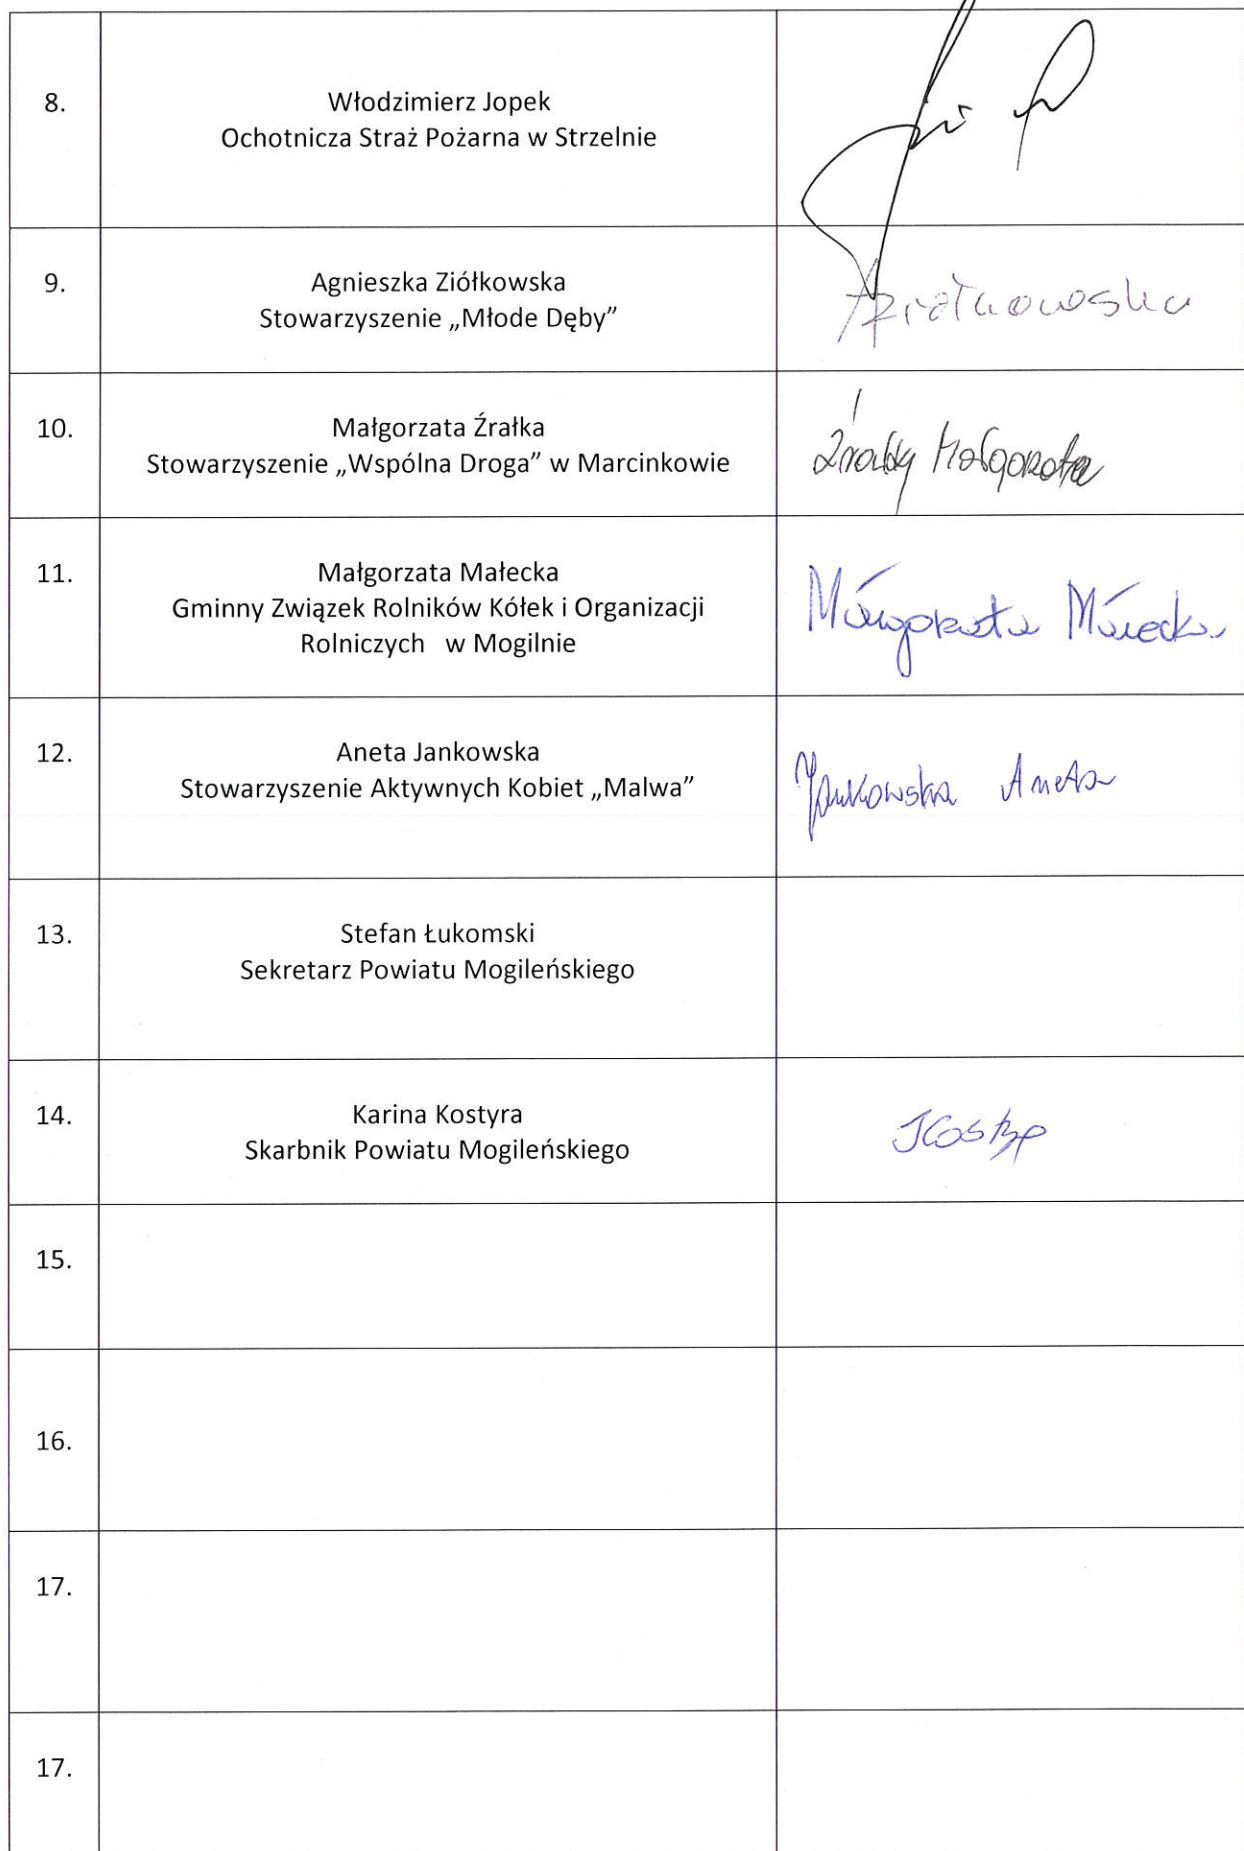 8.
Włodzimierz Jopek
Ochotnicza Straż Pożarna w Strzelnie
9.
Agnieszka Ziółkowska
Stowarzyszenie „Młode Dęby”
AZiółkowska
10.
Małgorzata Źrałka
Stowarzyszenie „Wspólna Droga” w Marcinkowie
Małgorzata
11.
Małgorzata Małecka
Gminny Związek Rolników Kółek i Organizacji
Rolniczych w Mogilnie
Małgorzata Małecka
12.
Aneta Jankowska
Stowarzyszenie Aktywnych Kobiet „Malwa”
Jankowska Aneta
13.
Stefan Łukomski
Sekretarz Powiatu Mogileńskiego
14.
Karina Kostyra
Skarbnik Powiatu Mogileńskiego
15.
16.
17.
17.